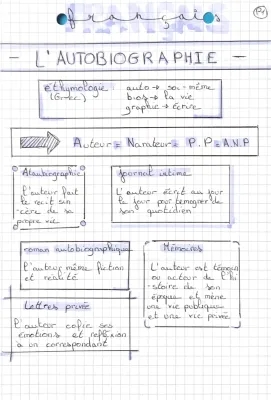 français
- L'AUTOBIOGRAPHIE -
éthymologie
(Grec)
auto → soi-même
bios → la vie
graphie → écrire
Auteur = Narateur = P.P = A.N.P
Autobiographie
L'auteur fait
le récit sin
-cère de sa
propre vie
Journal intime
L'auteur écrit au jour
le jour pour témoigner de
son quotidien
roman autobiographique
L'auteur même fiction
et réalité
Mémoires
L'auteur est témoin
ou acteur de l'hi
-stoire de son
époque et mène
une vie publique
et une vie privée
Lettres privée
L'auteur cofie ses
émotions et réflexion
à un correspondant